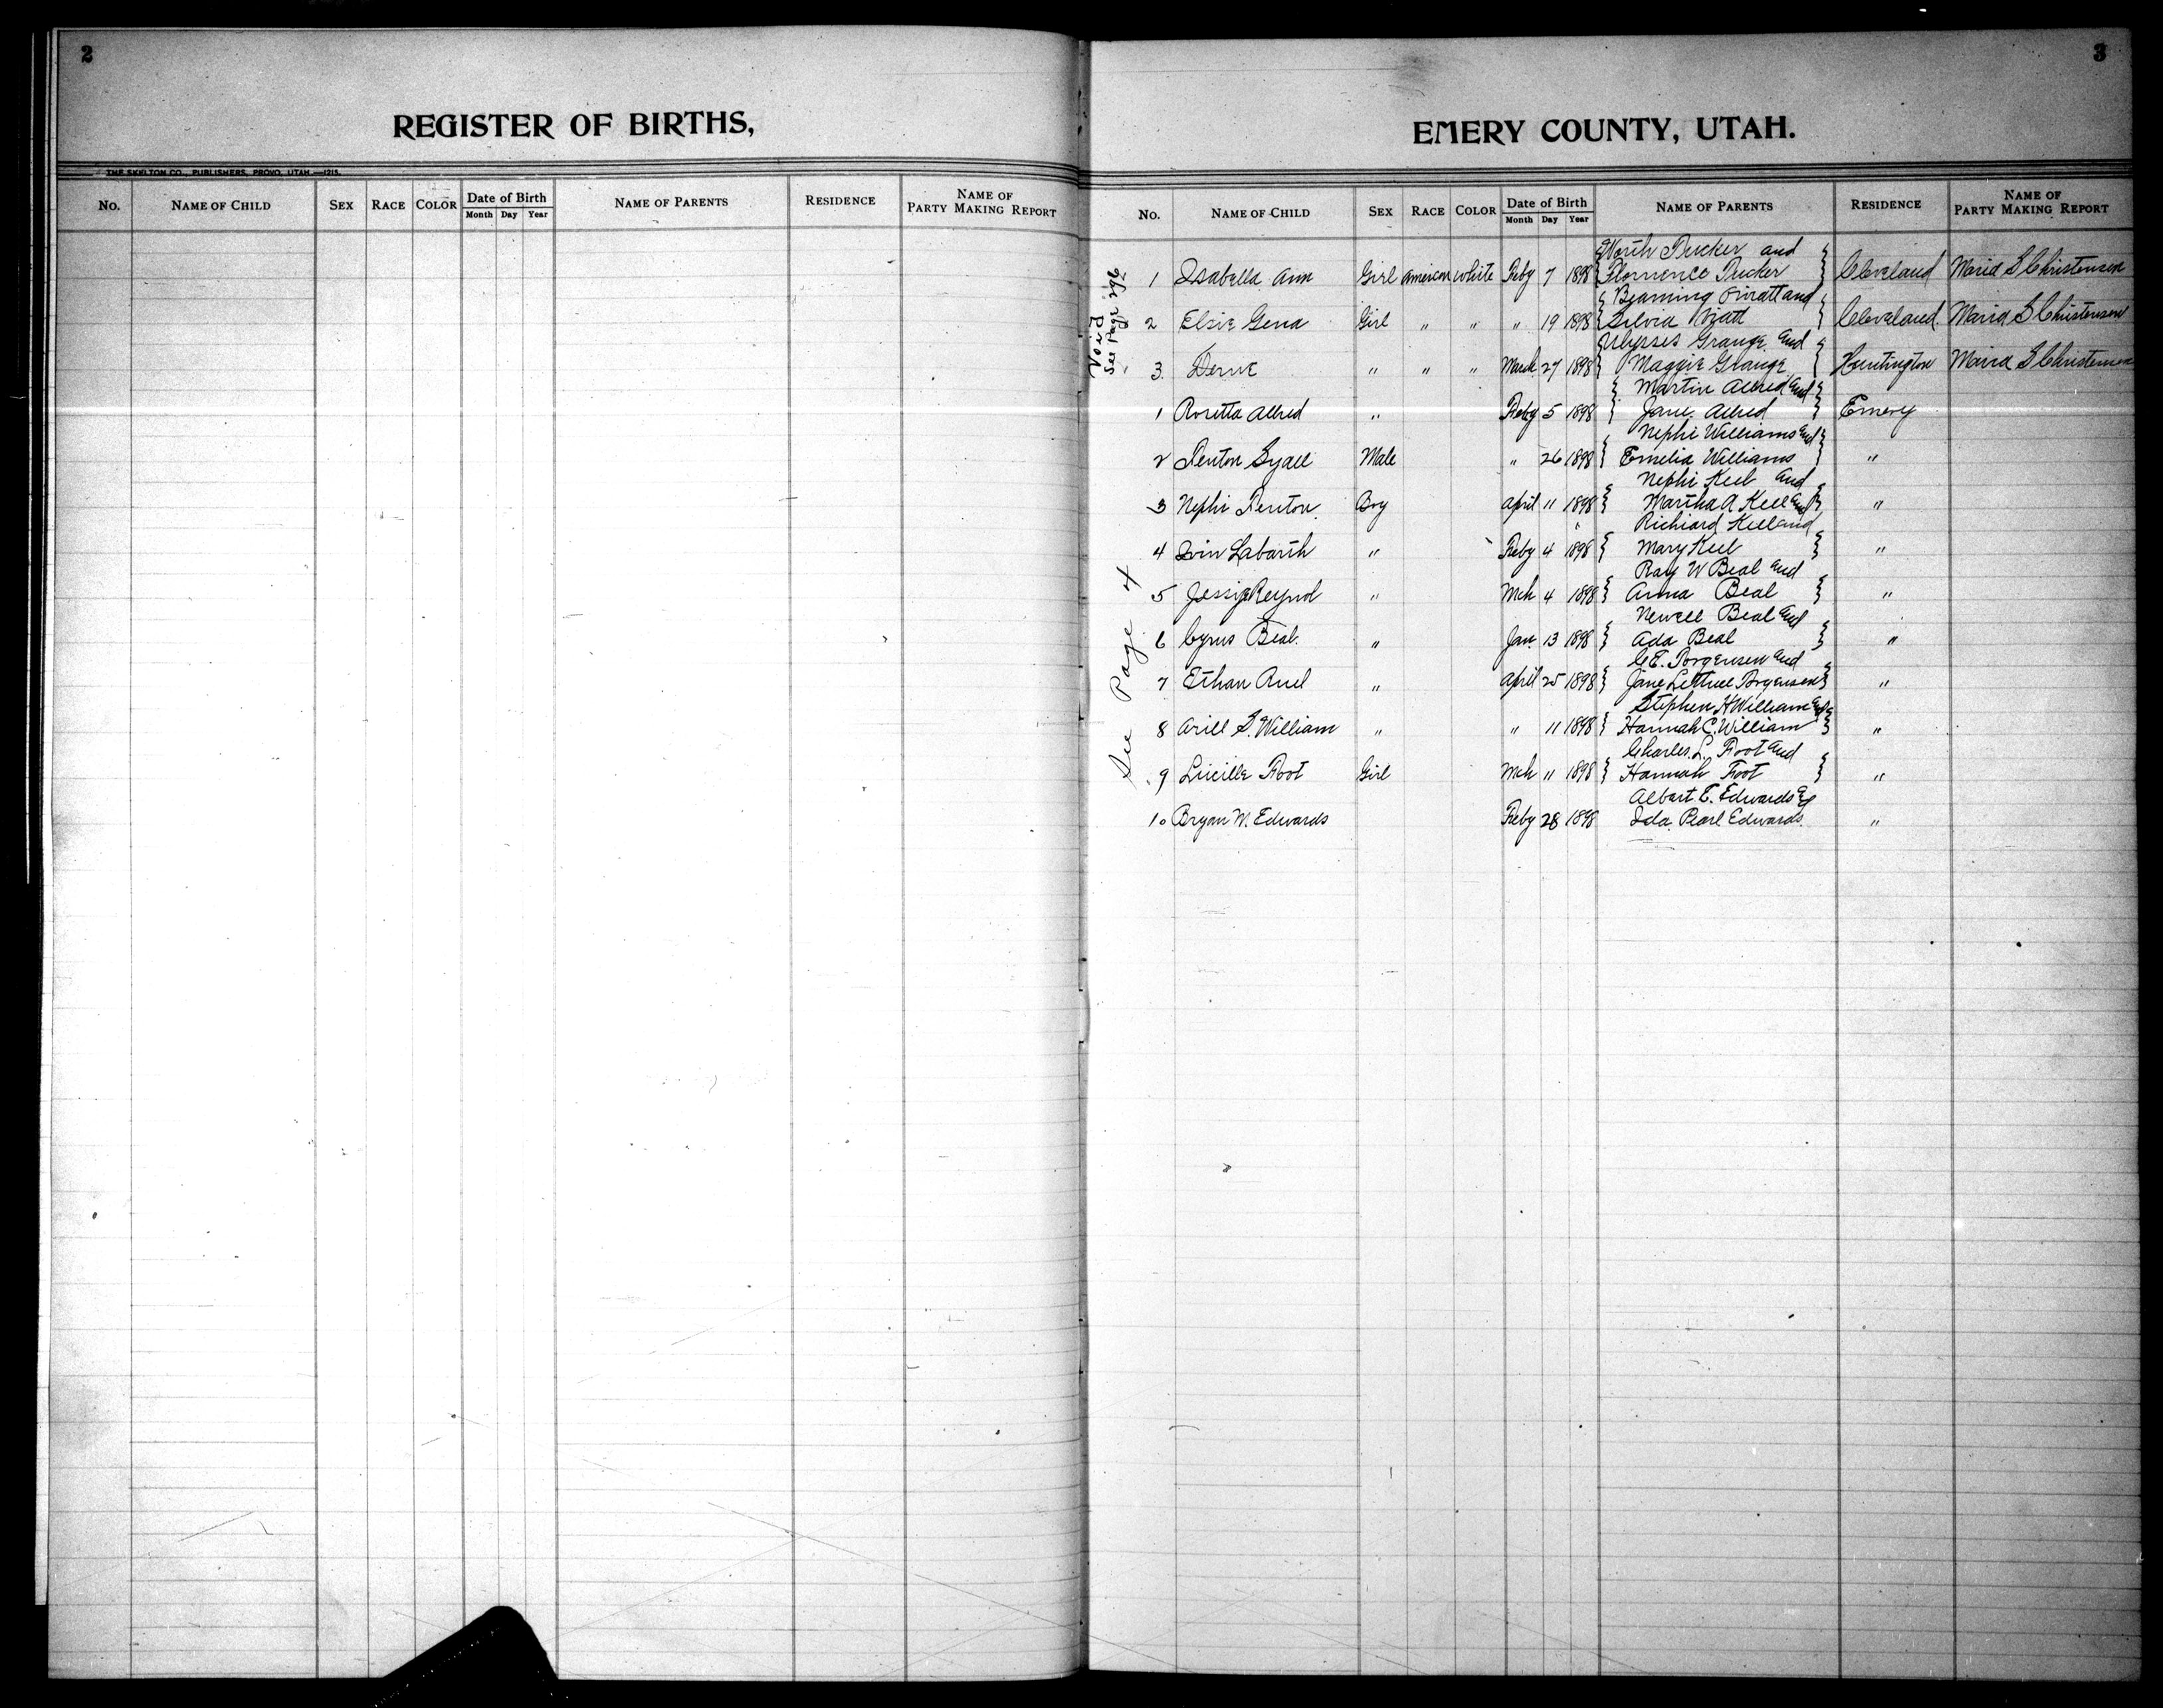 2
REGISTER OF BIRTHS,
THE SKELTON CO., PUBLISHERS, PROVO, UTAH.—1215.
No. NAME OF CHILD SEX RACE COLOR Date of Birth Month Day Year NAME OF PARENTS RESIDENCE NAME OF PARTY MAKING REPORT
3
EMERY COUNTY, UTAH.
No. NAME OF CHILD SEX RACE COLOR Date of Birth Month Day Year NAME OF PARENTS RESIDENCE NAME OF PARTY MAKING REPORT
See Page 292
See Page 4
North Tucker and
1 Isabella Ann Girl American White Feby 7 1898 Florrence Tucker Cleveland Maria S Christensen
and
2 Elsie Gena Girl " " " 19 1898 Silvia Cleveland. Maria S Christensen
Ulysses Grange and
3 " " " March 27 1898 Maggie Grange Huntington Maria S Christensen
Martin Allred and
1 Rosetta Allred " Feby 5 1898 Jane Allred Emery
Nephi Williams and
2 Fenton Male " 26 1898 Emelia Williams "
Nephi Keel and
3 Nephi Fenton Boy April 11 1898 Martha A Keel and "
Richard Keel and
4 " Feby 4 1898 Mary Keel "
Ray W Beal and
5 " Mch 4 1898 Anna Beal "
Newell Beal and
6 Cyrus Beal. " Jan. 13 1898 Ada Beal "
and
7 Ethan " April 25 1898 Jane "
Stephen H William and
8 Arill S. William " " 11 1898 Hannah C. William "
Charles L. Foot and
9 Lucille Foot Girl Mch 11 1898 Hannah Foot "
Albert E. Edwards &
10 Bryan M. Edwards Feby 28 1898 Ida Pearl Edwards. "